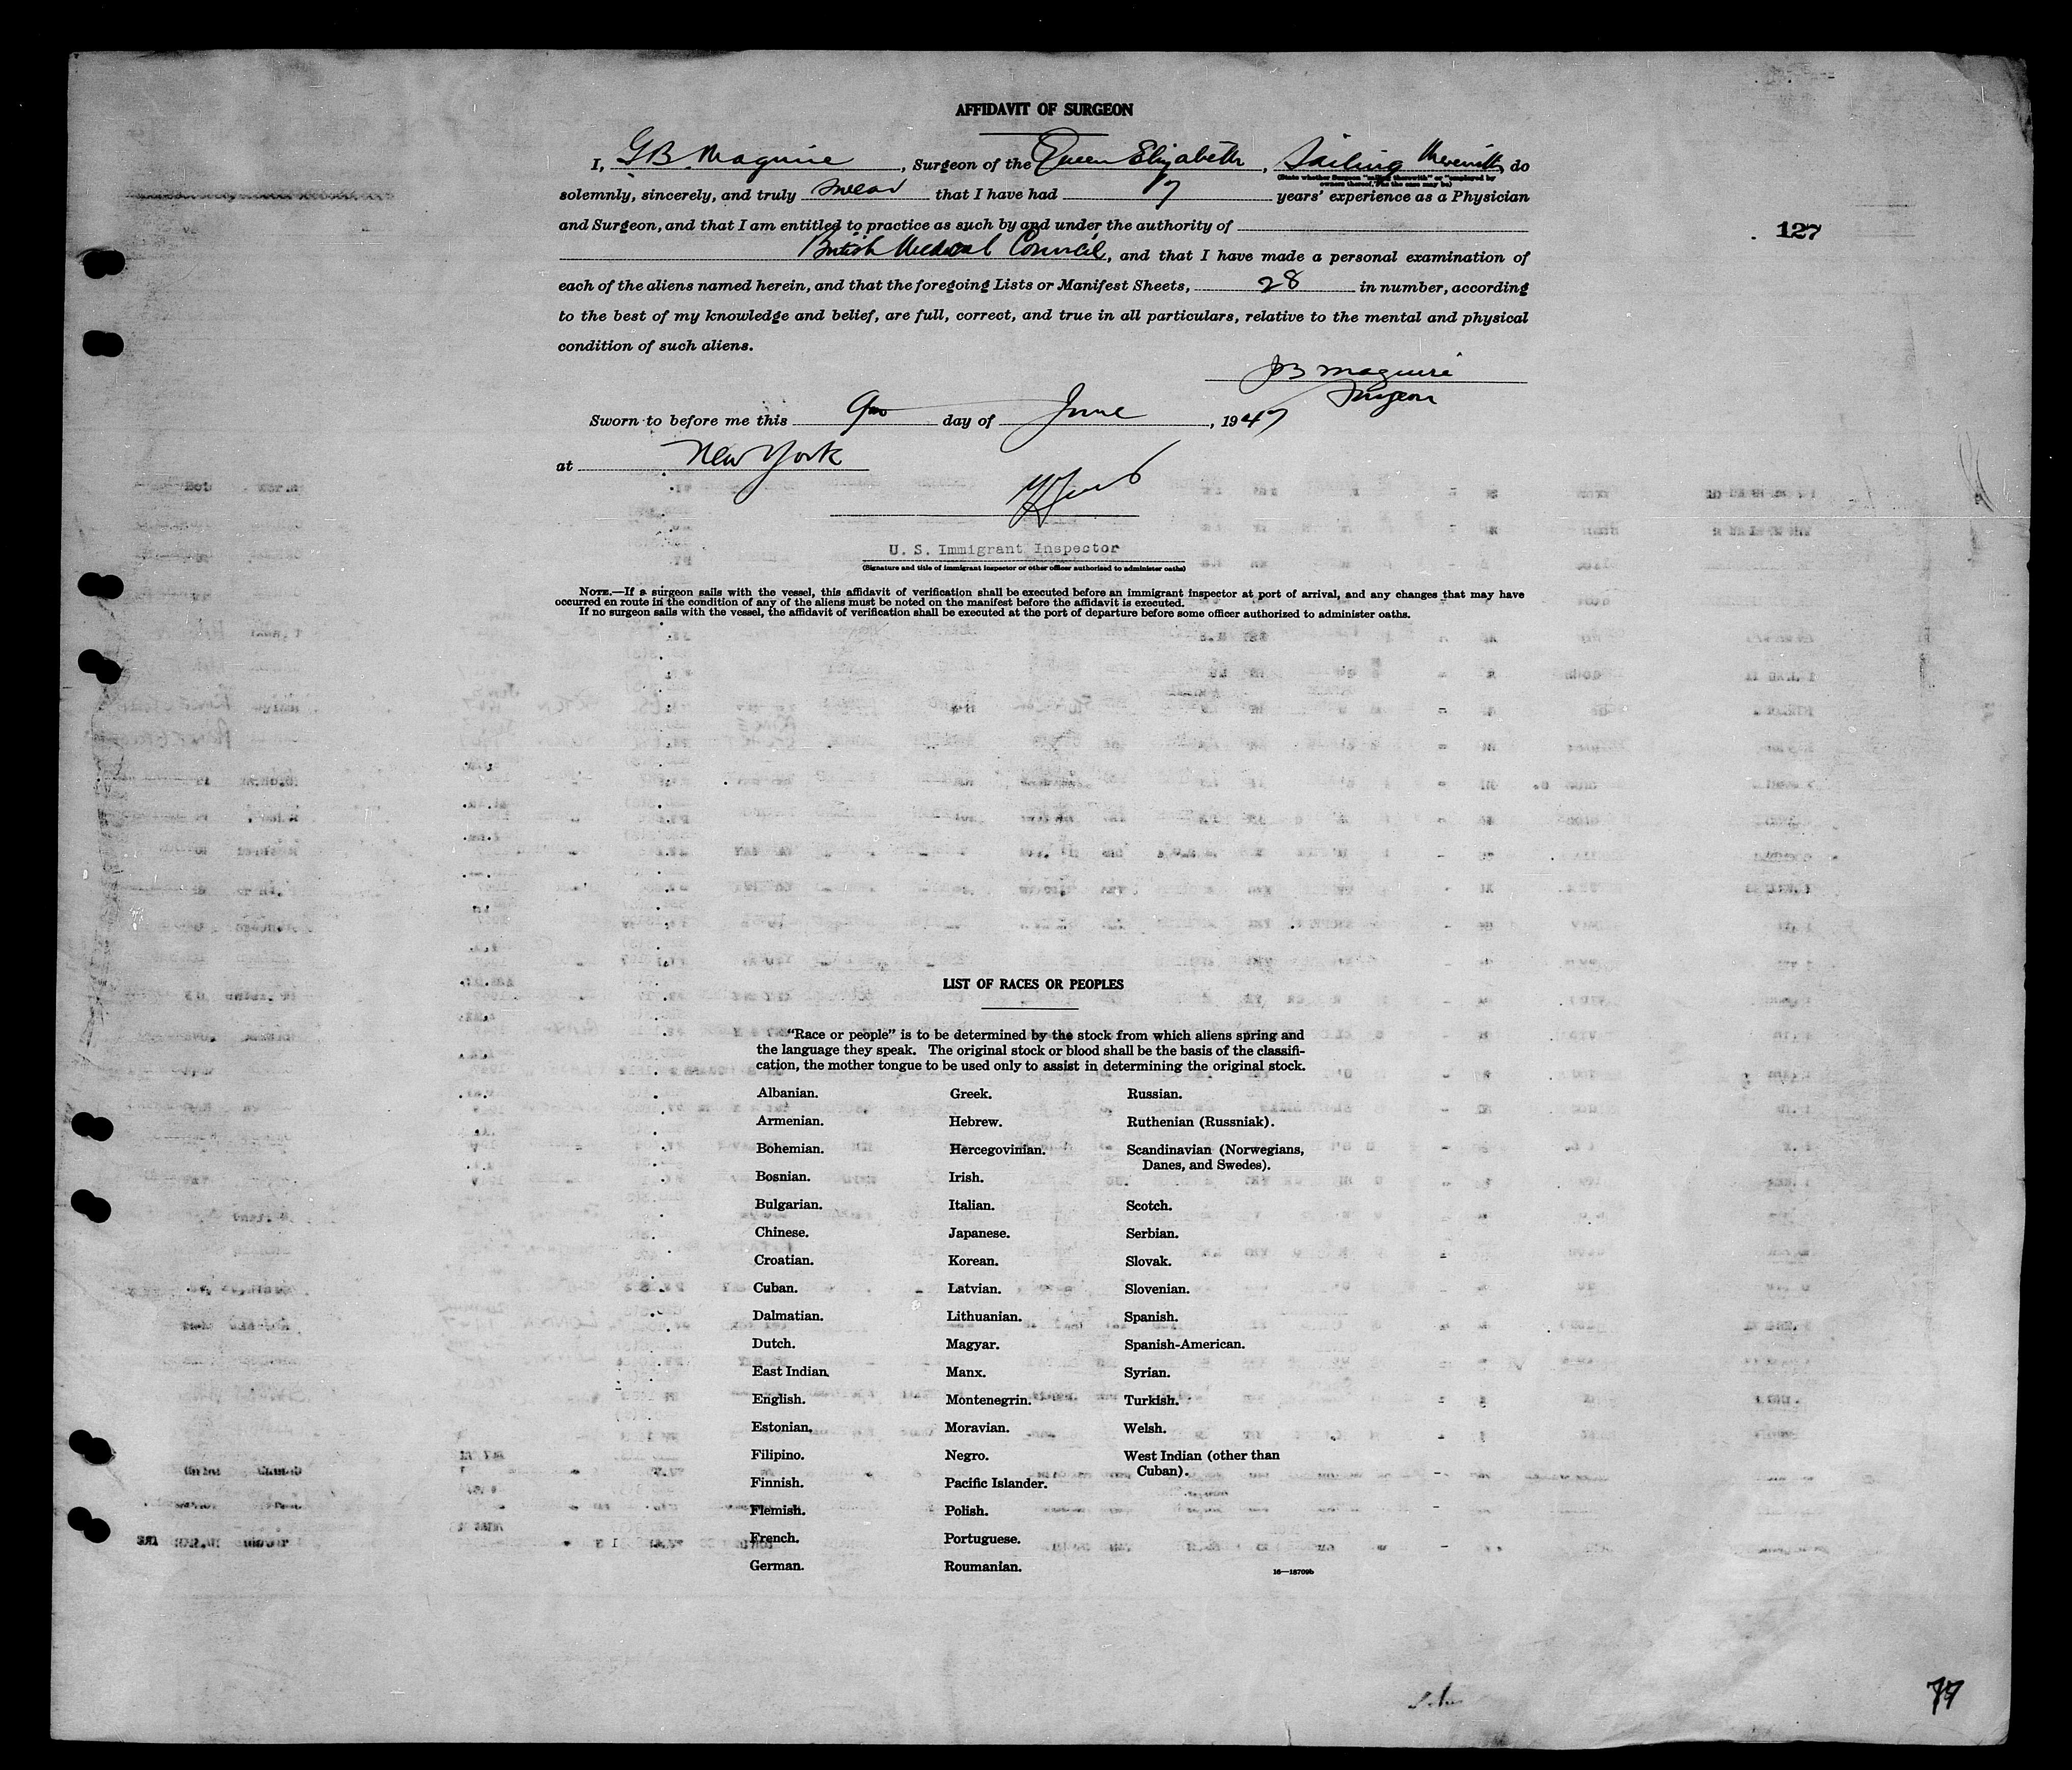 AFFIDAVIT OF SURGEON
I, GB Maguire, Surgeon of the Queen Elizabeth, Sailing therewith, do
(State whether Surgeon "sailing therewith" or "employed by owners thereof," as the case may be)
solemnly, sincerely, and truly swear that I have had 17 years' experience as a Physician
and Surgeon, and that I am entitled to practice as such by and under the authority of
British Medical Council, and that I have made a personal examination of
127
each of the aliens named herein, and that the foregoing Lists or Manifest Sheets, 28 in number, according
to the best of my knowledge and belief, are full, correct, and true in all particulars, relative to the mental and physical
condition of such aliens.
GB Maguire
Surgeon
Sworn to before me this 9th day of June, 1947
at New York
U. S. Immigrant Inspector
(Signature and title of immigrant inspector or other officer authorized to administer oaths)
NOTE.—If a surgeon sails with the vessel, this affidavit of verification shall be executed before an immigrant inspector at port of arrival, and any changes that may have
occurred en route in the condition of any of the aliens must be noted on the manifest before the affidavit is executed.
If no surgeon sails with the vessel, the affidavit of verification shall be executed at the port of departure before some officer authorized to administer oaths.
LIST OF RACES OR PEOPLES
"Race or people" is to be determined by the stock from which aliens spring and
the language they speak. The original stock or blood shall be the basis of the classifi-
cation, the mother tongue to be used only to assist in determining the original stock.
Albanian.
Armenian.
Bohemian.
Bosnian.
Bulgarian.
Chinese.
Croatian.
Cuban.
Dalmatian.
Dutch.
East Indian.
English.
Estonian.
Filipino.
Finnish.
Flemish.
French.
German.
Greek.
Hebrew.
Hercegovinian.
Irish.
Italian.
Japanese.
Korean.
Latvian.
Lithuanian.
Magyar.
Manx.
Montenegrin.
Moravian.
Negro.
Pacific Islander.
Polish.
Portuguese.
Roumanian.
Russian.
Ruthenian (Russniak).
Scandinavian (Norwegians,
Danes, and Swedes).
Scotch.
Serbian.
Slovak.
Slovenian.
Spanish.
Spanish-American.
Syrian.
Turkish.
Welsh.
West Indian (other than
Cuban).
16—18709b